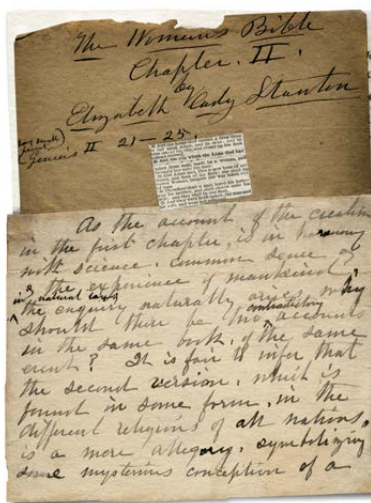 The Woman's Bible
Chapter. II.
by
Elizabeth Cady Stanton
Genesis II 21–25.
As the account of the creation
in the first chapter, is in harmony
with science, common sense, &
the experience of mankind
in natural laws
the enquiry naturally arises, why
contradictory
should there be two accounts
in the same book, of the same
event? It is fair to infer that
the second version, which is
found in some form, in the
different religions of all nations,
is a mere allegory, symbolizing
some mysterious conception of a